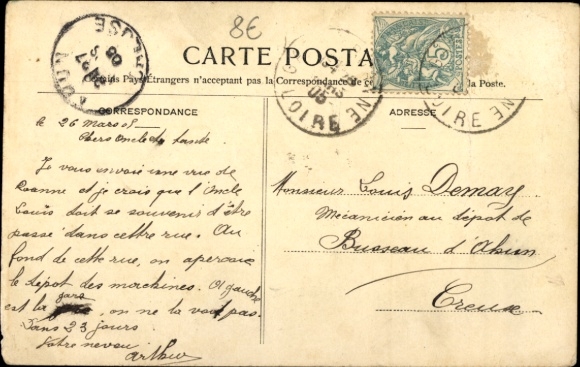 8€
CARTE POSTA
Certains Pays Étrangers n'acceptent pas la Correspondance de ce la Poste.
CORRESPONDANCE
ADRESSE
LOIRE
le 26 Mars 05
Chers Oncle et tante
Je vous envoie une vue de
Roanne et je crois que l'Oncle
Louis doit se souvenir d'être
passé dans cettre rue. Au
fond de cette rue, on aperçoit
le dépôt des machines. A gauche
est la gare, on ne la voit pas.
Dans 23 jours
Votre neveu
Arthur
Monsieur Louis Demay
Mécanicien au dépôt de
Busseau d'Ahun
Creuse